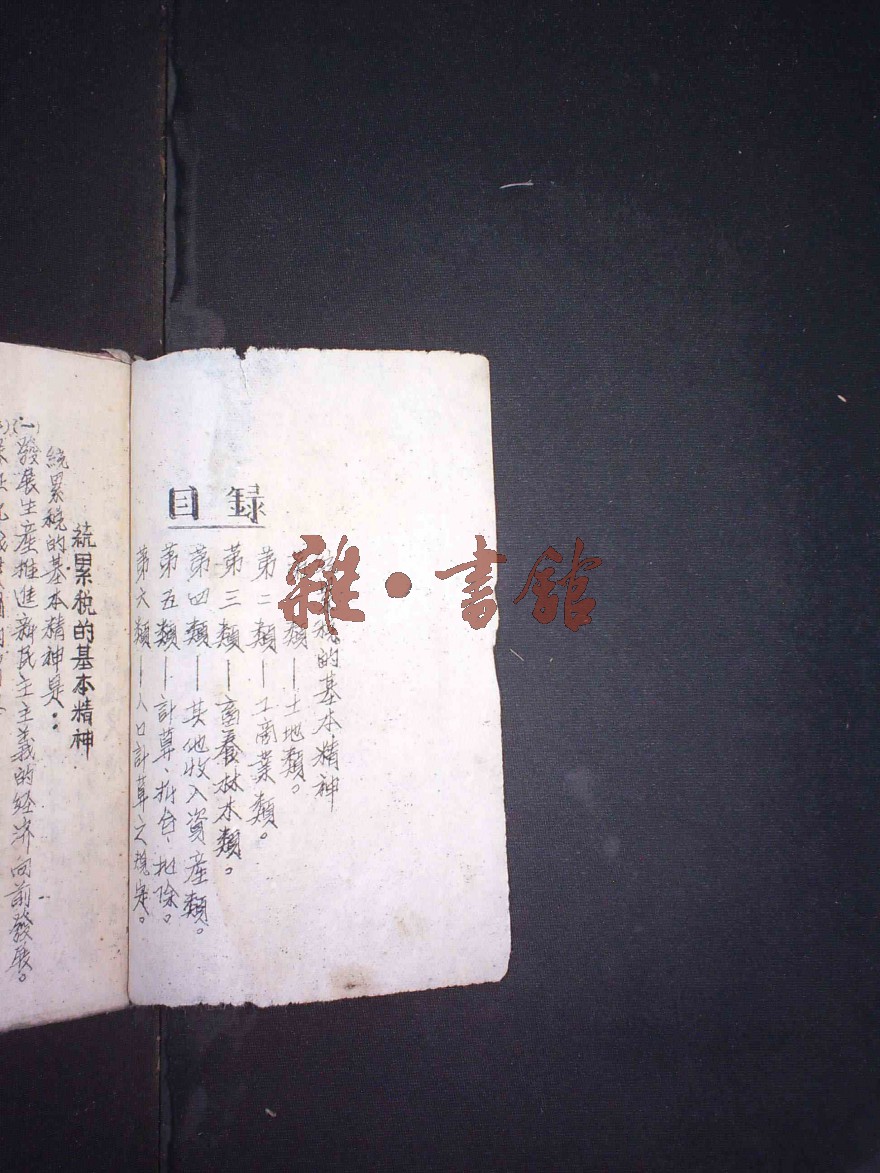 目录
税的基本精神
類—土地類。
第二類—工商業類。
第三類—畜養林木類。
第四類—其他收入資產類。
第五類—計算、折合、扣除。
第六類—人口計算之規定。
統累税的基本精神
統累税的基本精神是：
(一)發展生產推進新民主主義的经济向前發展。
雜·書館